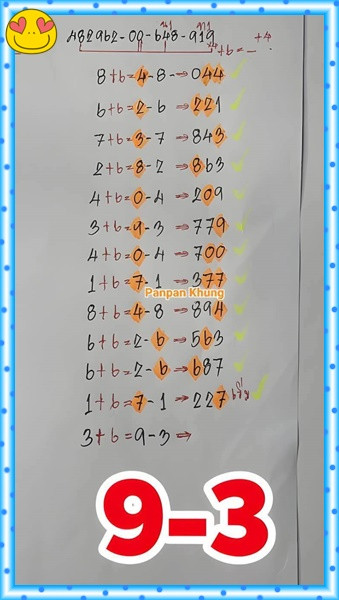 482962-00-648-919
+6=-
8+6=4-8-→044
6+6=2-6→221
7+6=3-7→843
2+6=8-2→863
4+6=0-4→209
3+6=9-3→779
4+6=0-4→700
1+6=7-1→377
Panpan Khung
8+6=4-8→894
6+6=2-6→563
6+6=2-6→687
1+6=7-1→227
3+6=9-3⇒
9-3